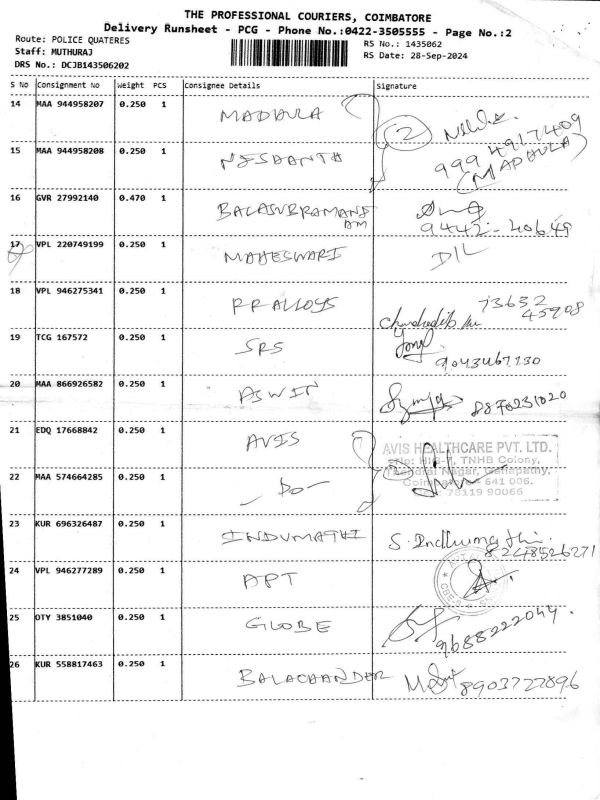 THE PROFESSIONAL COURIERS, COIMBATORE
Delivery Runsheet - PCG - Phone No.:0422-3505555 - Page No.:2
Route: POLICE QUATERES
RS No.: 1435062
Staff: MUTHURAJ
RS Date: 28-Sep-2024
DRS No.: DCJB143506202
S No Consignment No Weight PCS Consignee Details Signature
14 MAA 944958207 0.250 1 MADHULA 2
999 4917409
(MADHULA)
15 MAA 944958208 0.250 1 NISHANTH
16 GVR 27992140 0.470 1 BALASUBRAMANI
AM
9442-40649
17 VPL 220749199 0.250 1 MAHESWARI D/L
18 VPL 946275341 0.250 1 PP ALLOYS 73652
45908
19 TCG 167572 0.250 1 SRS
9043467130
20 MAA 866926582 0.250 1 ASWIN 8870231020
21 EDQ 17668842 0.250 1 AVIS
AVIS HEALTHCARE PVT. LTD.
TNHB Colony,
Nagar, Ganapathy,
Coimbatore - 641 006.
78119 90066
22 MAA 574664285 0.250 1 - Do -
23 KUR 696326487 0.250 1 INDUMATHI S. Indhumathi.
8248526271
24 VPL 946277289 0.250 1 APT
25 OTY 3851040 0.250 1 GLOBE
9688222044.
26 KUR 558817463 0.250 1 BALACHANDER 8903727896